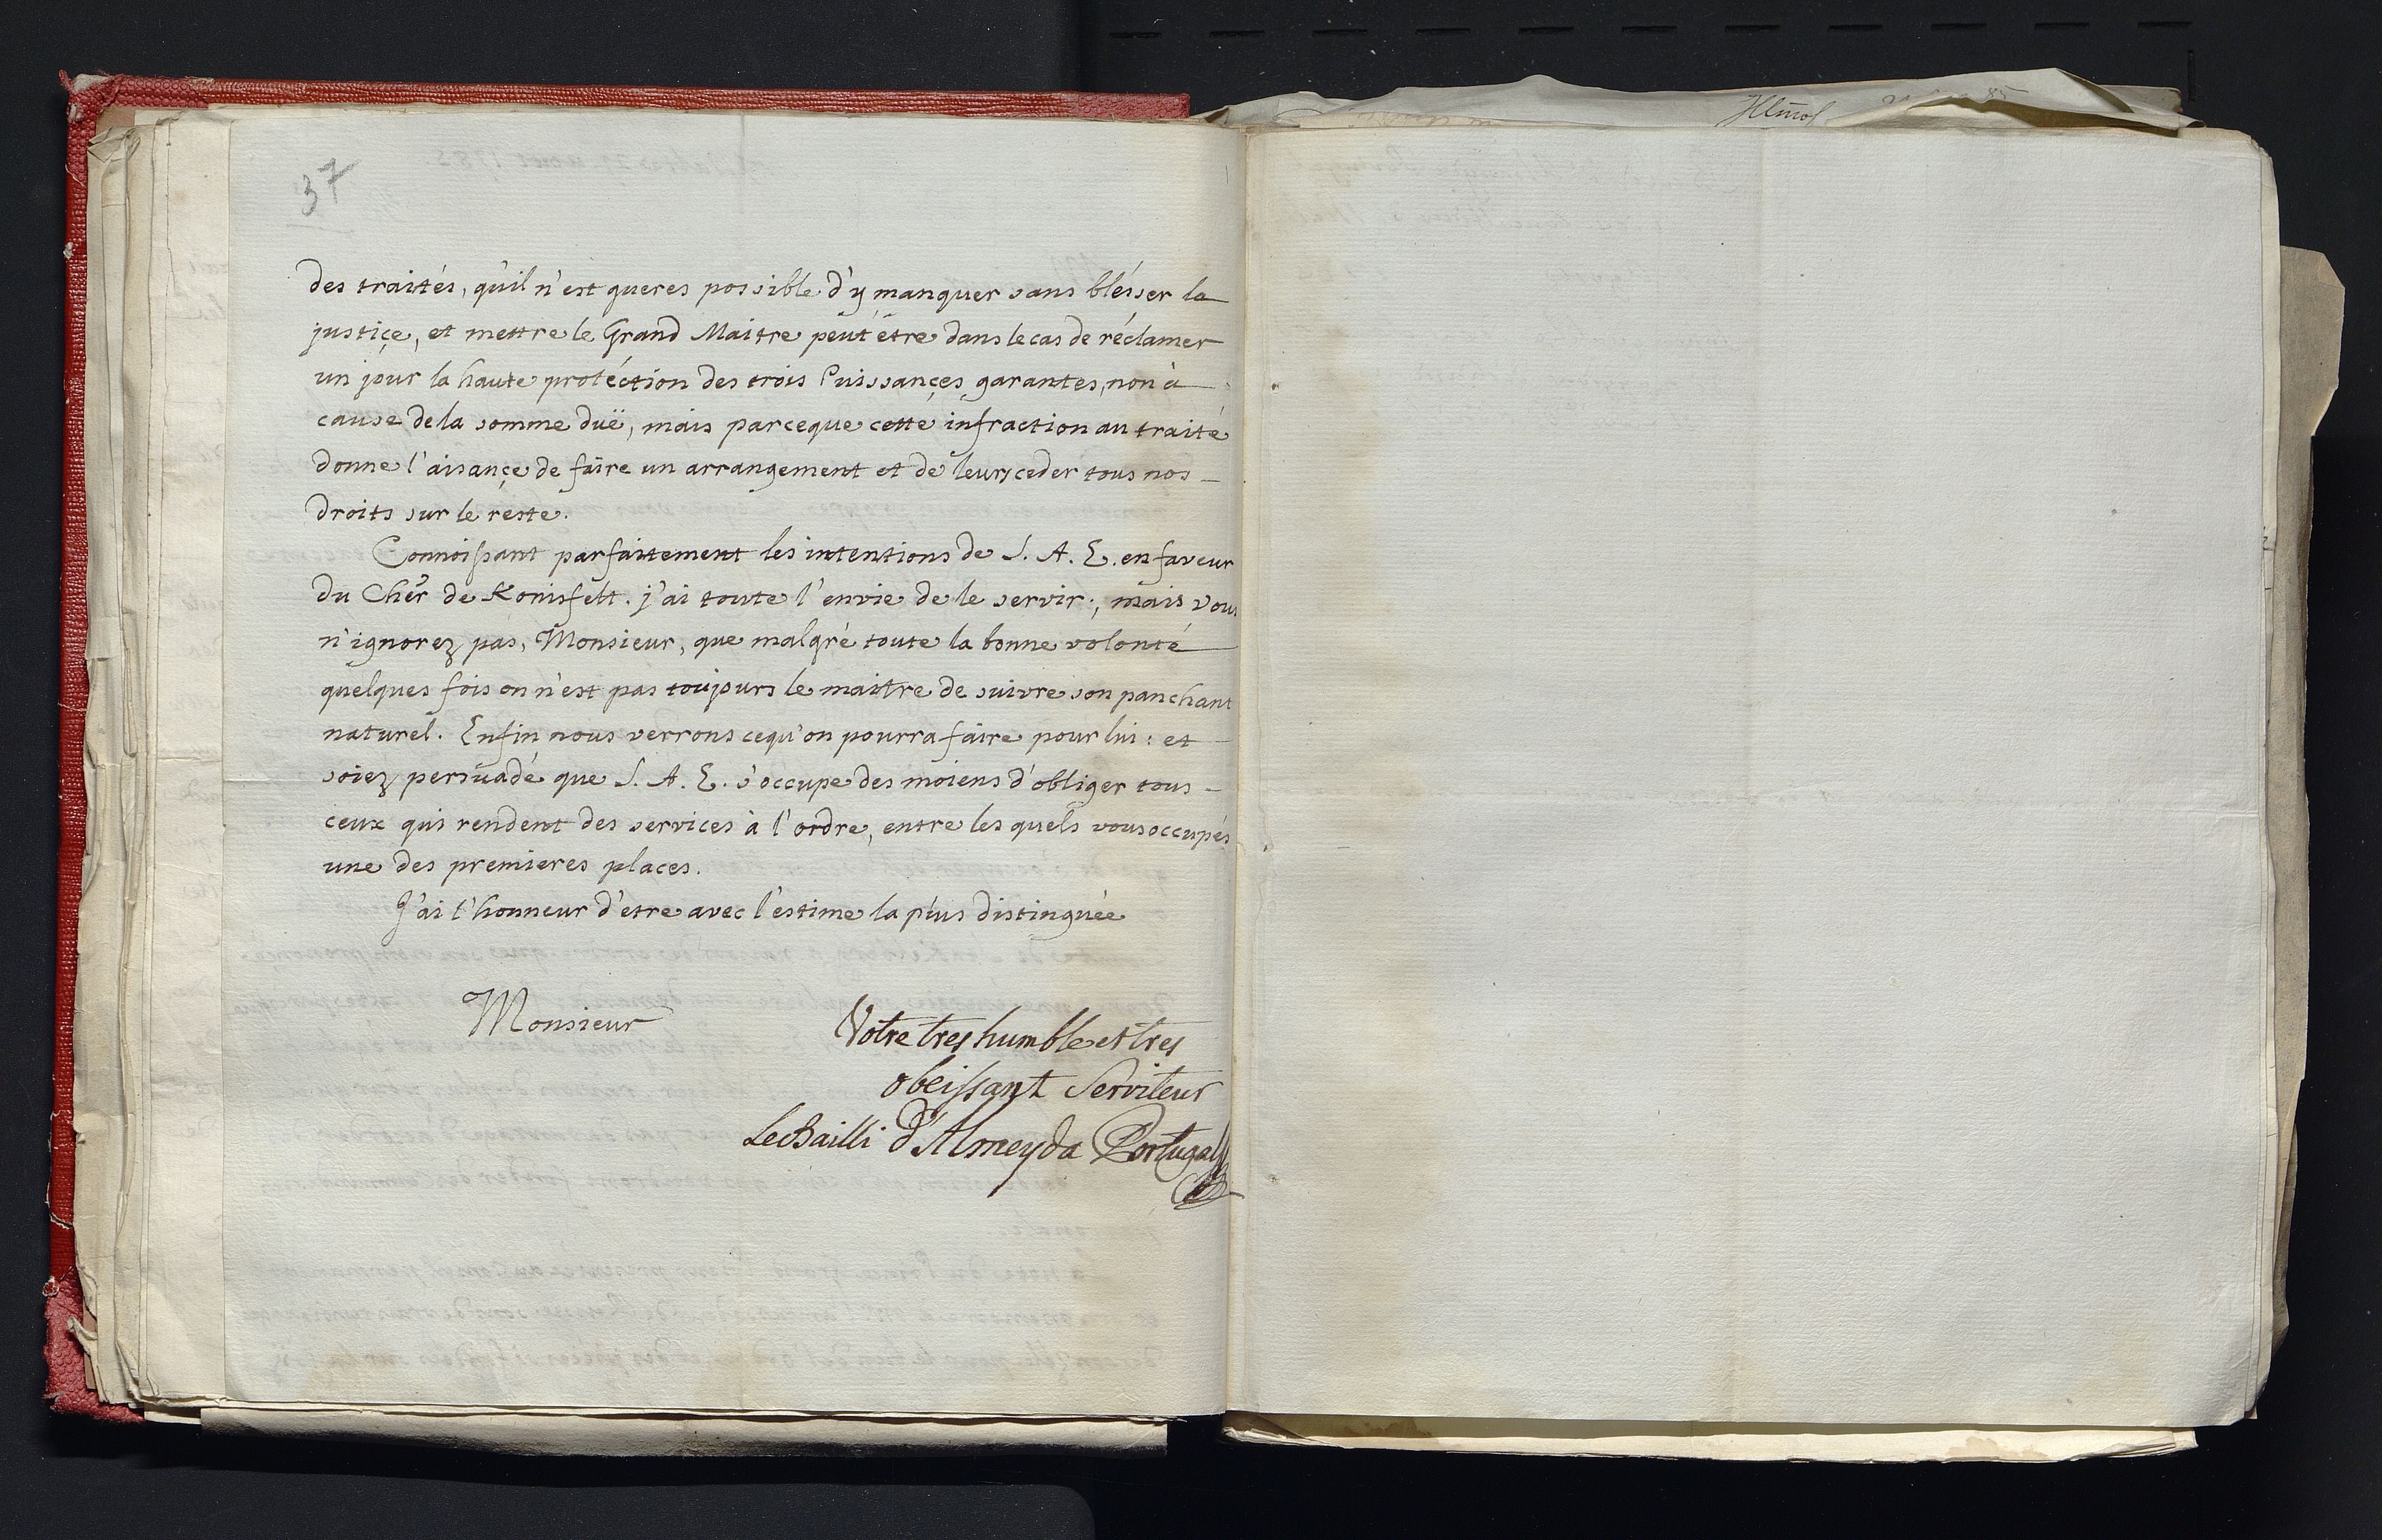 37
des traités, qu'il n'est queres possible d'y manquer sans blésser la
justiçe, et mettre le Grand Maitre peut étre dans le cas de réclamer
un jour la haute protéction des trois Puissançes garantes, non à
cause de la somme duë, mais parceque cette infraction au traité
donne l'aisançe de faire un arrangement et de leurs ceder tous nos
droits sur le reste.
Connoissant parfaitement les intentions de S. A. E. en faveur
du Cher de Konisfelt. j'ai toute l'envie de le servir; mais vous
n'ignorez pas, Monsieur, que malgré toute la bonne volonté
quelques fois on n'est pas toujours le maitre de suivre son panchant
naturel. Enfin nous verrons cequ'on pourra faire pour lui: et
soiez persuadé que S. A. E. s'occupe des moiens d'obliger tous
ceux qui rendent des services à l'ordre, entre les quels vous occupés
une des premieres places.
J'ai l'honneur d'etre avec l'estime la plus distinguée
Monsieur
Votre tres humble et tres
obeissant Serviteur
Le Bailli d'Almeyda Portugal